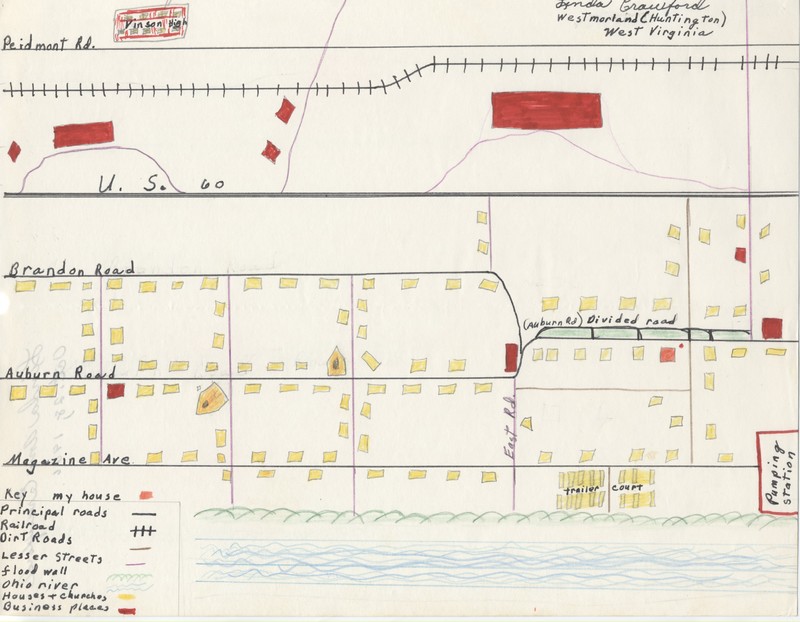 Linda Crawford
Westmorland (Huntington)
West Virginia
Vinson High
Peidmont Rd.
U. S. 60
Brandon Road
(Auburn Rd) Divided road
Auburn Road
East Rd.
Magazine Ave.
Pumping station
trailer court
Key my house
Principal roads
Railroad
Dirt Roads
Lesser Streets
flood wall
Ohio river
Houses + churches
Business places